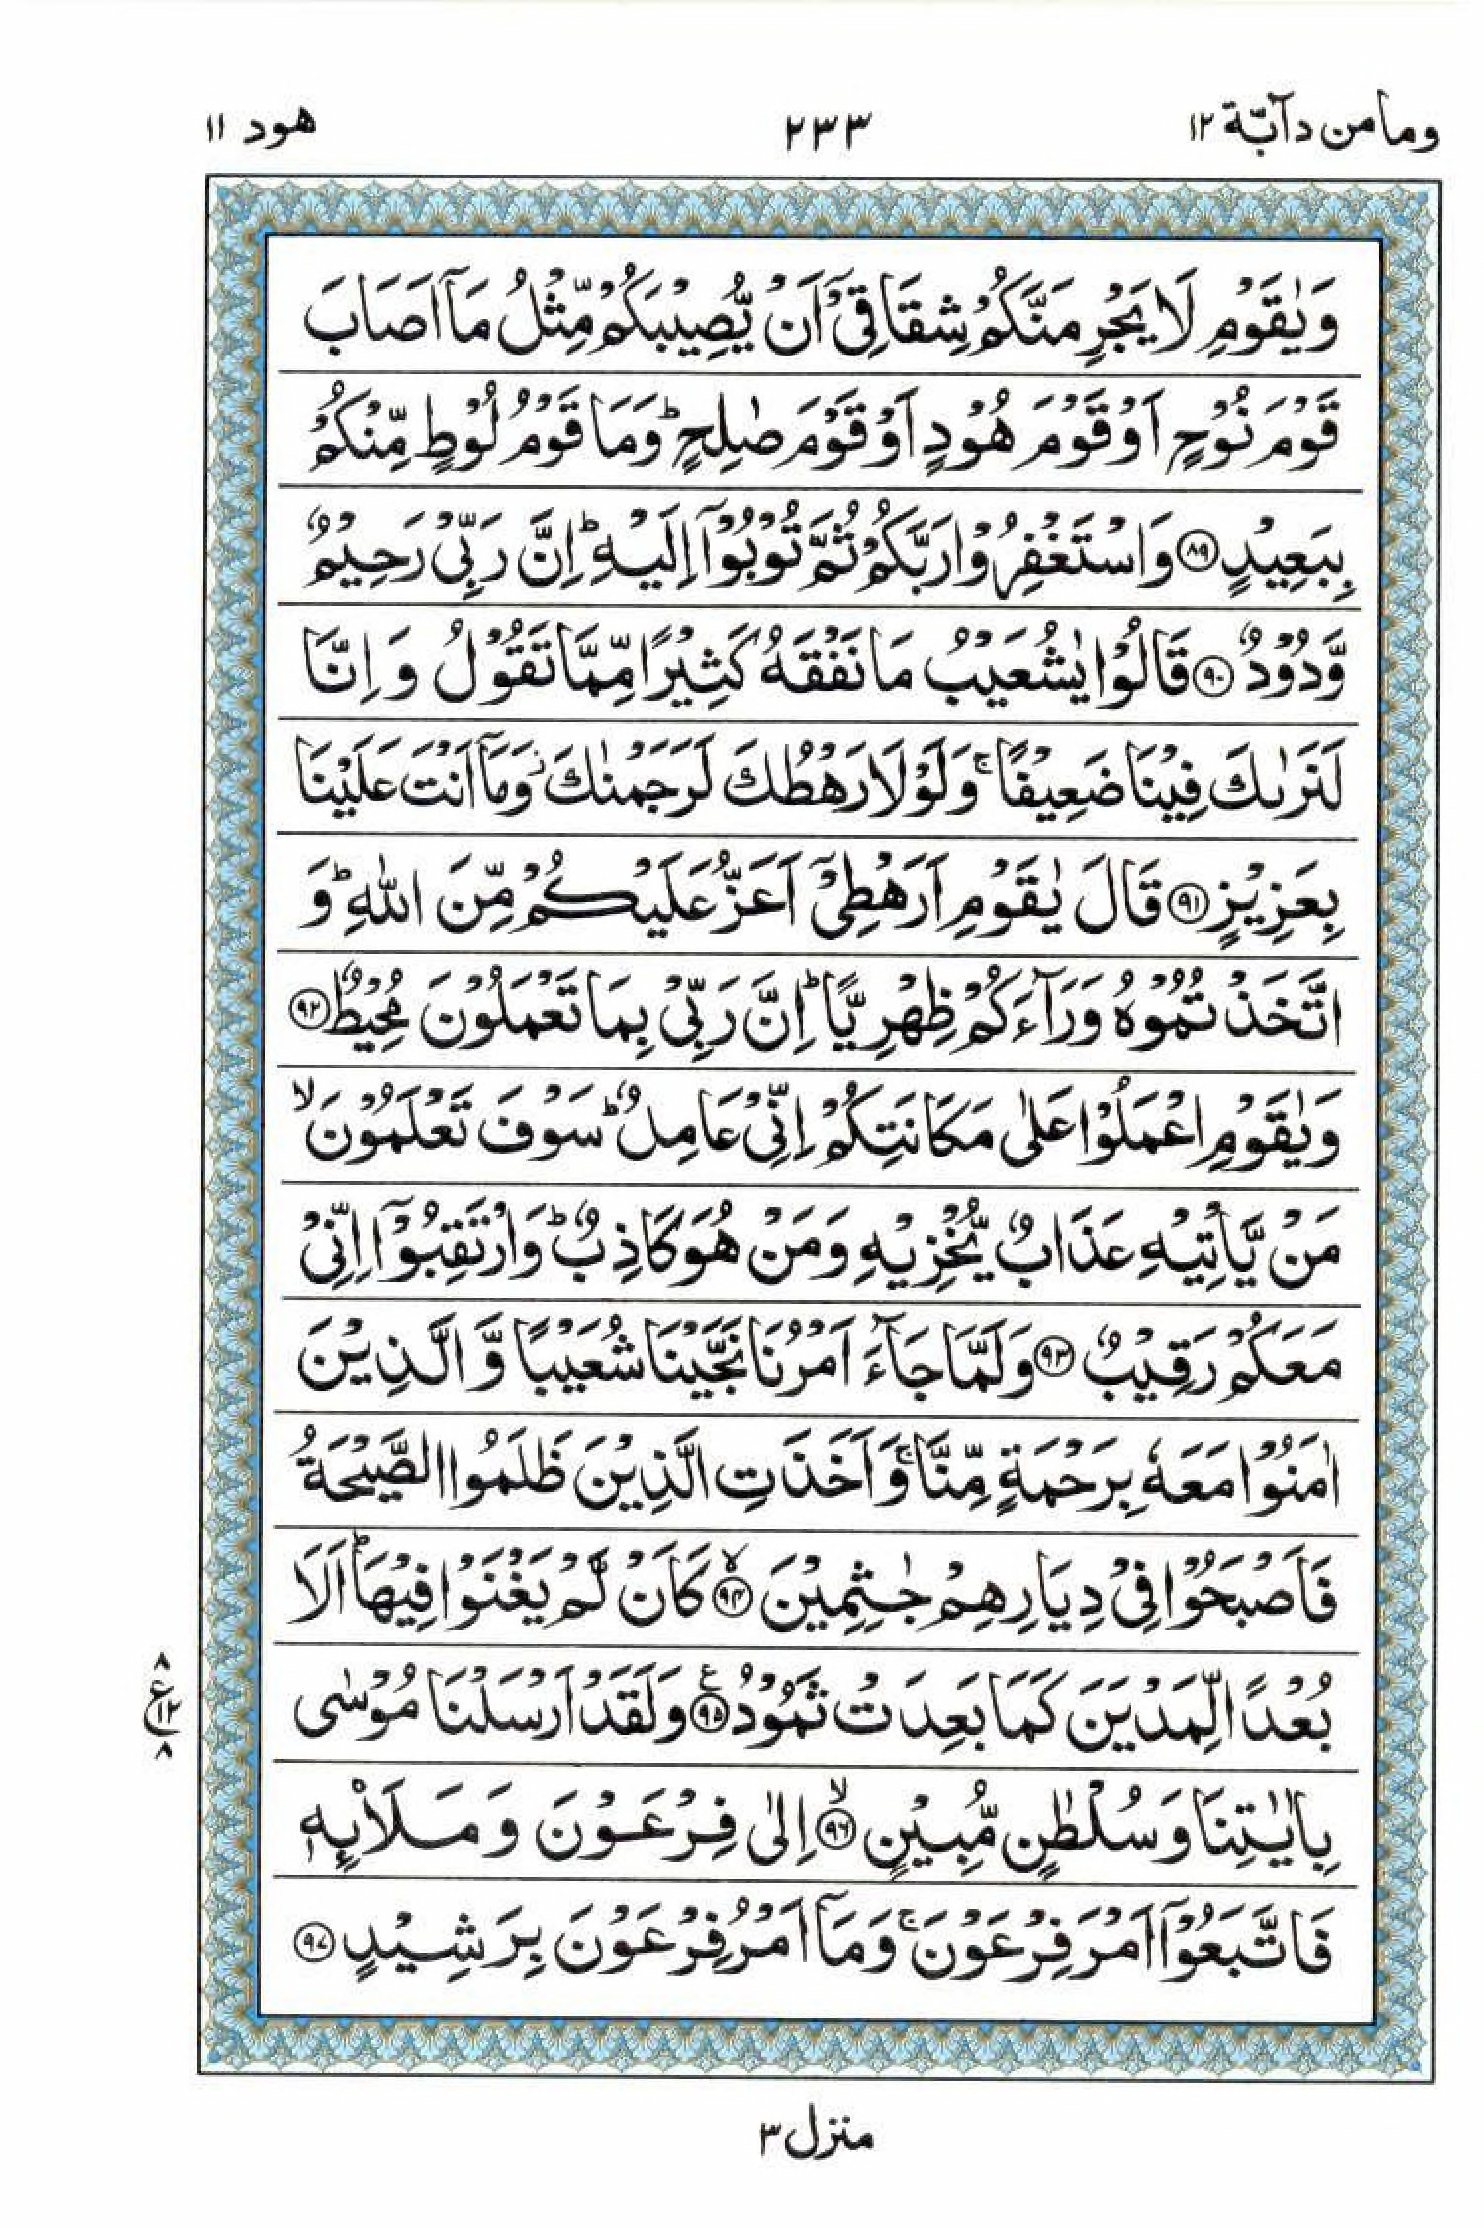 وما من دآبّة ١٢ ٢٣٣ هود ١١
وَيٰقَوْمِ لَا يَجْرِمَنَّكُمْ شِقَاقِيْٓ اَنْ يُّصِيْبَكُمْ مِّثْلُ مَآ اَصَابَ
قَوْمَ نُوْحٍ اَوْ قَوْمَ هُوْدٍ اَوْ قَوْمَ صٰلِحٍ ؕ وَمَا قَوْمُ لُوْطٍ مِّنْكُمْ
بِبَعِيْدٍ ﴿۸۹﴾ وَاسْتَغْفِرُوْا رَبَّكُمْ ثُمَّ تُوْبُوْٓا اِلَيْهِ ؕ اِنَّ رَبِّيْ رَحِيْمٌ
وَّدُوْدٌ ﴿۹۰﴾ قَالُوْا يٰشُعَيْبُ مَا نَفْقَهُ كَثِيْرًا مِّمَّا تَقُوْلُ وَ اِنَّا
لَنَرٰىكَ فِيْنَا ضَعِيْفًا ۚ وَلَوْلَا رَهْطُكَ لَرَجَمْنٰكَ ؗ وَمَآ اَنْتَ عَلَيْنَا
بِعَزِيْزٍ ﴿۹۱﴾ قَالَ يٰقَوْمِ اَرَهْطِيْٓ اَعَزُّ عَلَيْكُمْ مِّنَ اللّٰهِ ؕ وَ
اتَّخَذْتُمُوْهُ وَرَآءَكُمْ ظِهْرِيًّا ؕ اِنَّ رَبِّيْ بِمَا تَعْمَلُوْنَ مُحِيْطٌ ﴿۹۲﴾
وَيٰقَوْمِ اعْمَلُوْا عَلٰى مَكَانَتِكُمْ اِنِّيْ عَامِلٌ ؕ سَوْفَ تَعْلَمُوْنَ ۙ
مَنْ يَّاْتِيْهِ عَذَابٌ يُّخْزِيْهِ وَمَنْ هُوَ كَاذِبٌ ؕ وَارْتَقِبُوْٓا اِنِّيْ
مَعَكُمْ رَقِيْبٌ ﴿۹۳﴾ وَلَمَّا جَآءَ اَمْرُنَا نَجَّيْنَا شُعَيْبًا وَّالَّذِيْنَ
اٰمَنُوْا مَعَهٗ بِرَحْمَةٍ مِّنَّا ۚ وَاَخَذَتِ الَّذِيْنَ ظَلَمُوا الصَّيْحَةُ
فَاَصْبَحُوْا فِيْ دِيَارِهِمْ جٰثِمِيْنَ ۙ﴿۹۴﴾ كَاَنْ لَّمْ يَغْنَوْا فِيْهَا ؕ اَلَا
بُعْدًا لِّمَدْيَنَ كَمَا بَعِدَتْ ثَمُوْدُ ﴿۹۵﴾ ع وَلَقَدْ اَرْسَلْنَا مُوْسٰى
٨ ع ١٢ ٨
بِاٰيٰتِنَا وَسُلْطٰنٍ مُّبِيْنٍ ۙ﴿۹۶﴾ اِلٰى فِرْعَوْنَ وَ مَلَا۟ئِهٖ
فَاتَّبَعُوْٓا اَمْرَ فِرْعَوْنَ ۚ وَمَآ اَمْرُ فِرْعَوْنَ بِرَشِيْدٍ ﴿۹۷﴾
منزل ٣